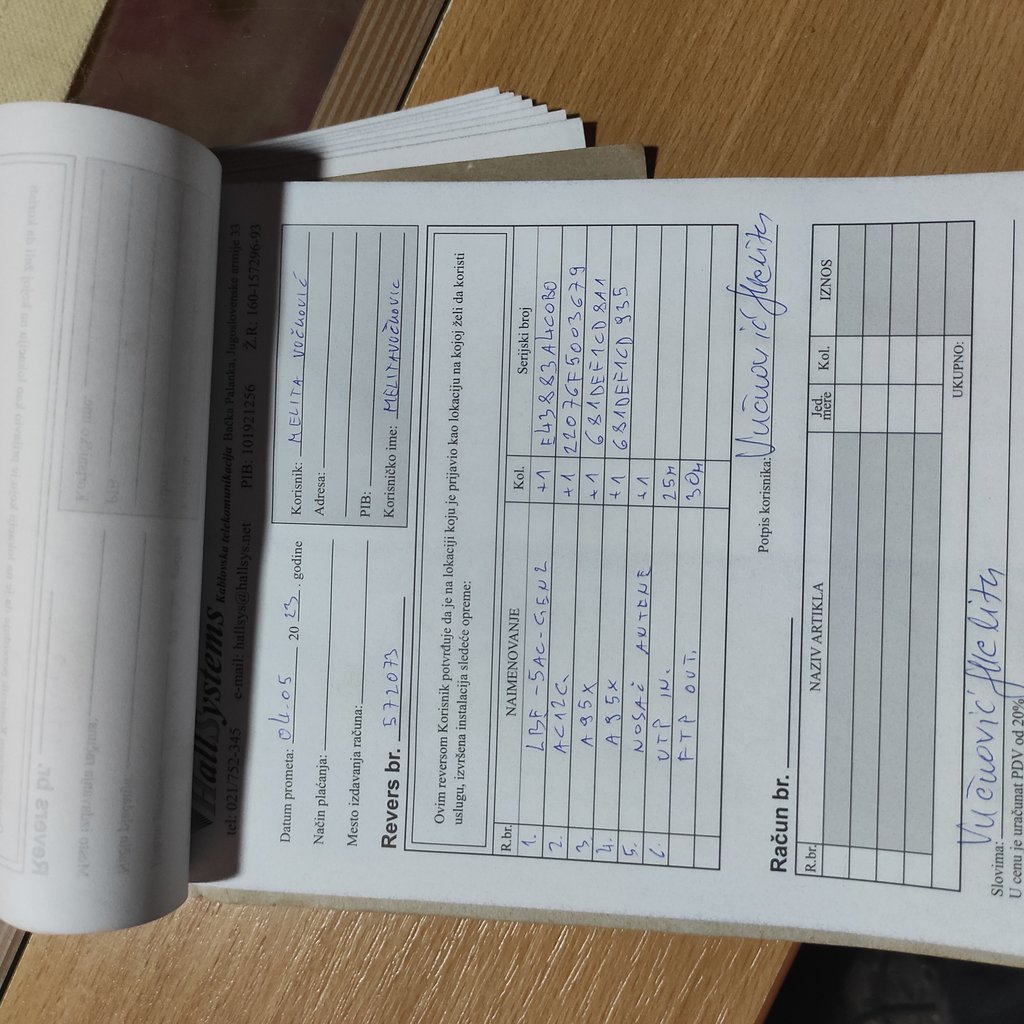 HallSystems Kablovska telekomunikacija Bačka Palanka, Jugoslovenske armije 33
tel: 021/752-345 e-mail: hallsys@hallsys.net PIB: 101921256 Ž.R. 160-157296-93
Datum prometa: 04.05 2023. godine
Način plaćanja:
Mesto izdavanja računa:
Revers br. 572073
Korisnik: MELITA VUČKOVIĆ
Adresa:
PIB:
Korisničko ime: MELITAVUČKOVIC
Ovim reversom Korisnik potvrđuje da je na lokaciji koju je prijavio kao lokaciju na kojoj želi da koristi
uslugu, izvršena instalacija sledeće opreme:
R.br. NAIMENOVANJE Kol. Serijski broj
1. LBE-5AC-GEN2 +1 E43883A4C0B0
2. AC12G. +1 22076F5003679
3 A95X +1 681DEF1CD8A1
4. A95X +1 681DEF1CD935
5. NOSAČ ANTENE +1
6. UTP IN. 25M
FTP OUT. 30M
Potpis korisnika: Vučković Melita
Račun br.
R.br. NAZIV ARTIKLA Jed. mere Kol. IZNOS
UKUPNO:
Slovima: Vučković Melita
U cenu je uračunat PDV od 20%